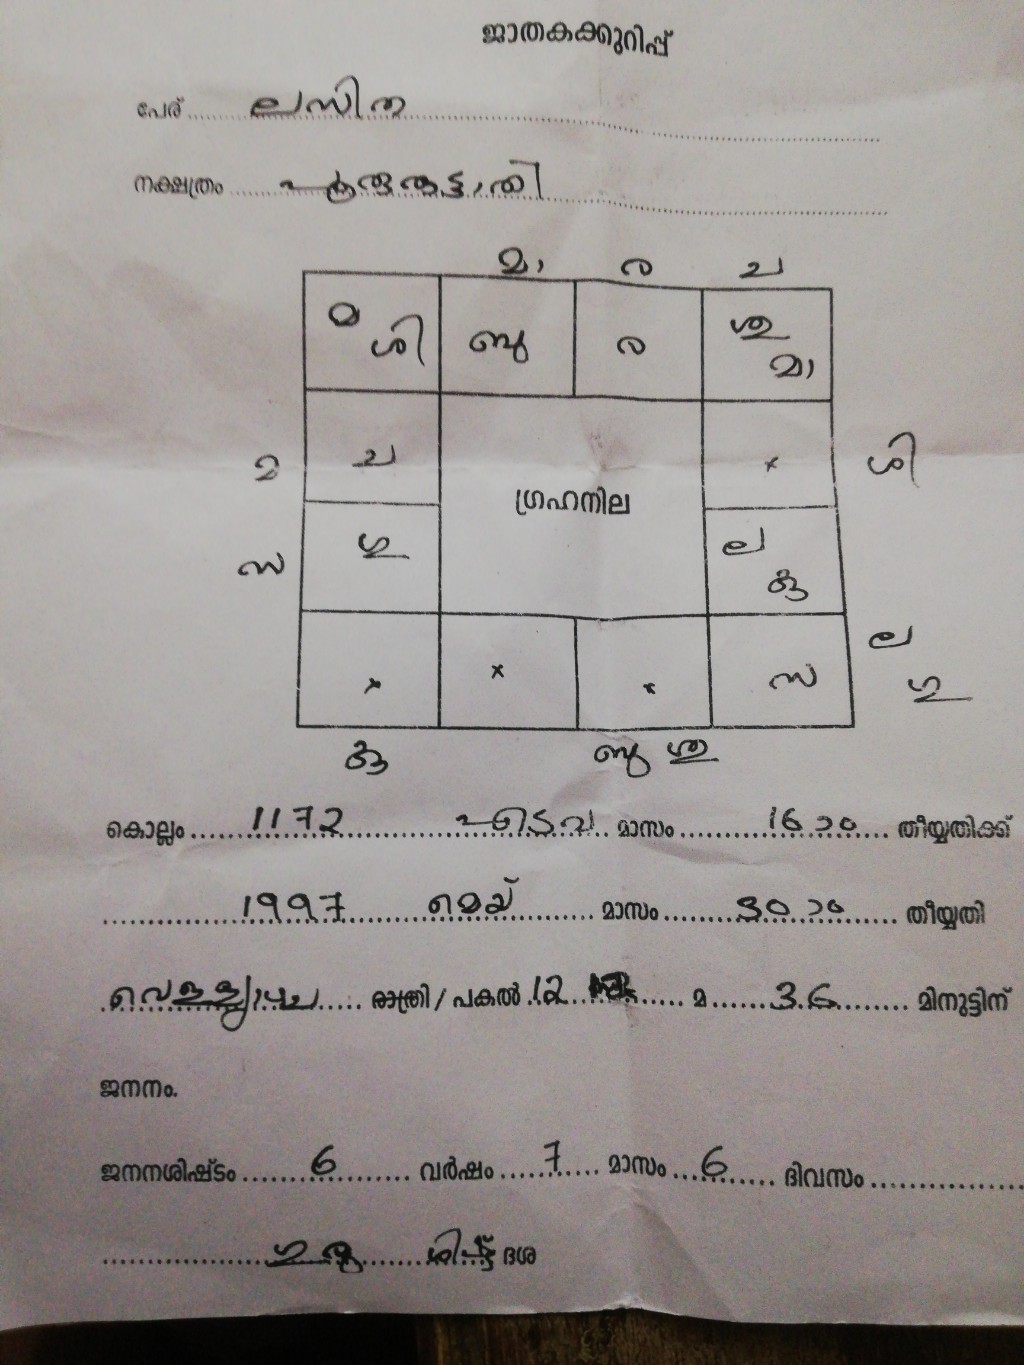 ജാതകക്കുറിപ്പ്
പേര് ലസിത
നക്ഷത്രം പൂരുരുട്ടാതി
മാ ര ച
മ ശി ബു ര ശു മാ
മ ച x ശി
ഗ്രഹനില
സ ഗു ല കു
ല ഗു
x x x സ
കു ബു ശു
കൊല്ലം 1172 എടവ മാസം 16 ാം തീയ്യതിക്ക്
1997 മെയ് മാസം 30 ാം തീയ്യതി
വെള്ളിയാഴ്ച രാത്രി / പകൽ 12 മ 36 മിനുട്ടിന്
ജനനം.
ജനനശിഷ്ടം 6 വർഷം 7 മാസം 6 ദിവസം
ഗുരു ശിഷ്ട ദശ